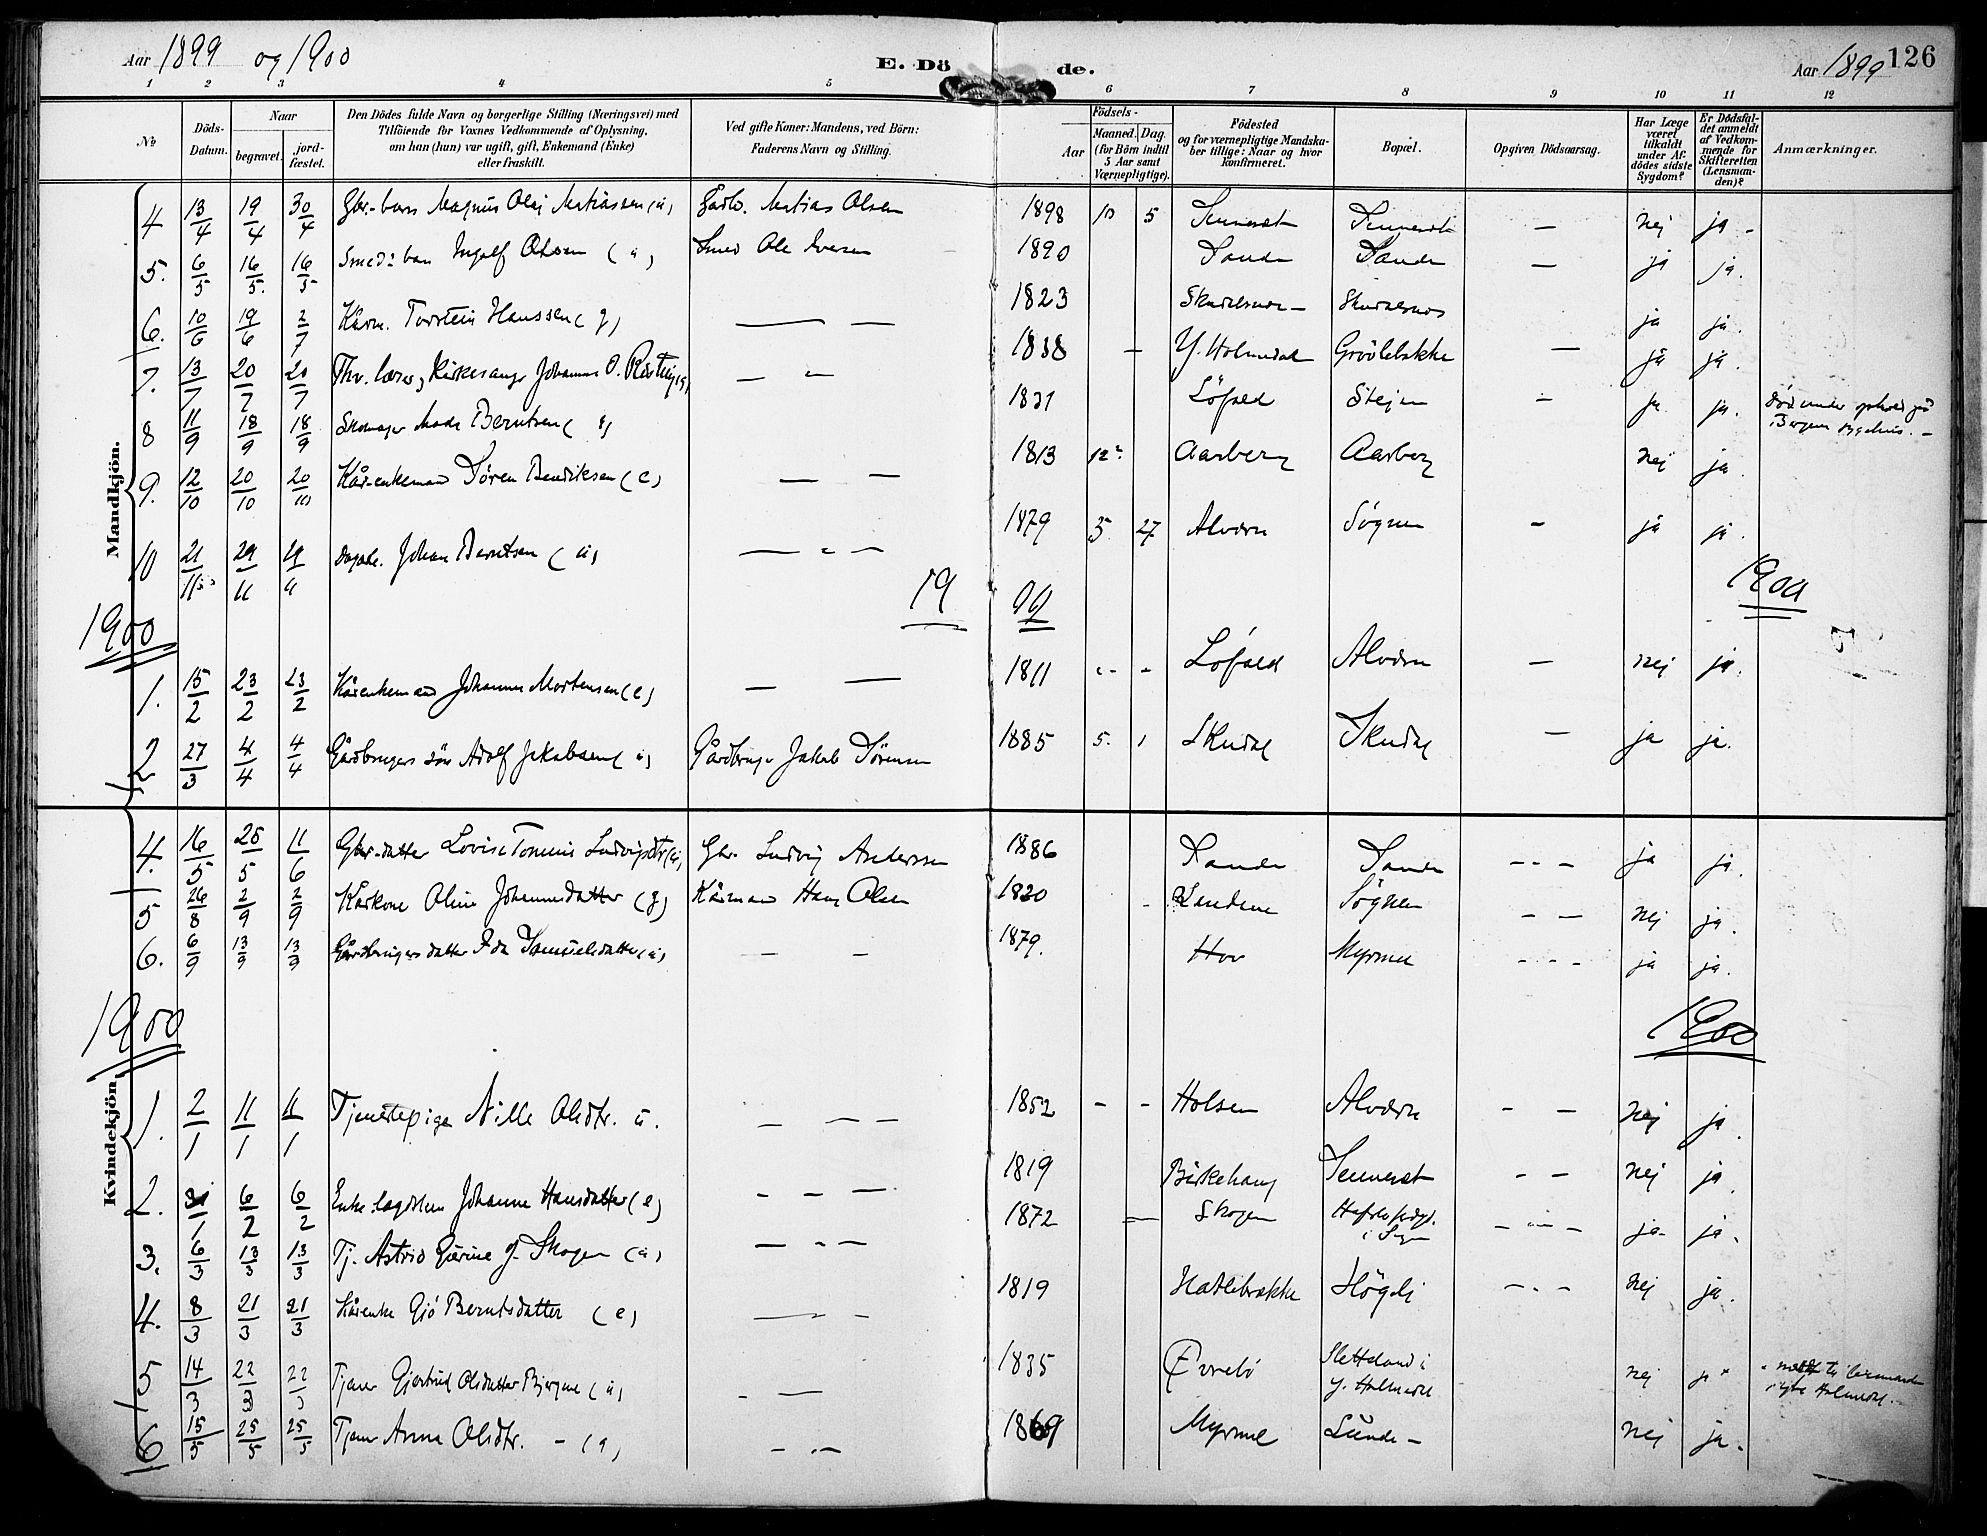 Aar 1899 og 1900
E. Dö de.
Aar 1899 126
1 2 3 4 5 6 7 8 9 10 11 12
No
Döds-Datum.
Naar
begravet. jord-fæstet.
Den Dödes fulde Navn og borgerlige Stilling (Næringsvei) med
Tilföiende for Voxnes Vedkommende af Oplysning,
om han (hun) var ugift, gift, Enkemand (Enke)
eller fraskilt.
Ved gifte Koner: Mandens, ved Börn:
Faderens Navn og Stilling.
Födsels-
Aar
Maaned. Dag.
(for Börn indtil
5 Aar samt
Værnepligtige).
Födested
og for værnepligtige Mandska-
ber tillige: Naar og hvor
konfirmeret.
Bopæl.
Opgiven Dödsaarsag.
Har Læge
været
tilkaldt
under Af-
dödes sidste
Sygdom?
Er Dödsfal-
det anmeldt
af Vedkom-
mende for
Skifteretten
(Lensman-
den)?
Anmærkninger.
Mandkjön.
4 13/4 19/4 30/4 Gbr.-barn Magnus Olai Matiassen (u) Gårdb. Matias Olsen 1898 10 5 Sunnerst Sunnerst — nej ja -
5. 6/5 16/5 16/5 Smeds barn Ingolf Olsen (u) Smed Ole Iversen 1890 Sande Sande — ja ja.
6. 10/6 19/6 2/7 Kårm. Torstein Hanssen (g) — — 1823 Skudalsnes - Skudalsnes ja ja.
7. 13/7 20/7 20/7 Fhv. lærer, Kirkesanger Johannes O. — — 1838 — Y. Holmedal Grövlebakke — ja ja.
8 11/9 18/9 18/9 Skomager Mads Berntsen 1831 Löfald Stejen — ja ja. död under ophold på
i Bergens sygehus. -
9. 12/10 20/10 20/10 Kårenkemand Sören Bendiksen (e) — — 1813 12 Aarberg Aarberg nej ja
10 21/11 29/11 29/11 Johan Berntsen (u) — - — 1879 5 27 Alværa Sögnen — ja ja.
1900 19 00 1900
1. 15/2 23/2 23/2 Kårenkemand Johannes Mortensen (e) — — 1811 - - Löfald Alværa — nej ja.
2 27/3 4/4 4/4 Gårdbrugers sön Adolf Jakobsen (u) Gårdbruger Jakob Sörensen 1885 5. 1 Skudal Skudal — ja ja.
4. 16/5 25/5 11/6 Gbr-datter Lovise Tomine Ludvigsdtr (u) Gbr. Ludvig Andersen 1886 Sande Sande - - - ja ja.
5 26/8 2/9 2/9 Kårkone Oline Johannesdatter (g) Kårmand Hans Olsen 1820 - Sögnen - - nej ja.
6. 6/9 13/9 13/9 Gårdbrugers datter Ida Samuelsdatter (u) - - 1879. Hov Myrmel - - - ja ja.
1900 1900
Kvindekjön.
1. 2/1 11/1 11/1 Tjenestepige Nille Olsdtr. u. - - - 1852 - - Holsen Alværa - - nej ja.
2. 31/1 6/2 6/2 Enke Johanne Hansdatter (e) - - - 1819 Birkehaug Sunnerst - - nej ja.
3. 6/3 13/3 13/3 Tj. Astrid Gurine J. Skogen (u) - - - 1872 Skogen
i Sogn - - - ja - ja.
4. 8/3 21/3 21/3 Kårenke Gjö Berntsdatter (e) - - - 1819 Hatlebrække Högeli - - - nej ja.
5 14/3 22/3 22/3 Tjener Gjertrud Olsdatter Bjergene (u) - — 1835 Evrebö Sletteland i
y. Holmedal nej ja meldt til lensmanden
i ytre Holmedal. -
6 15/5 25/5 25/5 Tjener Anna Olsdtr. - - - - 1869 Myrmel Lunde - nej ja -